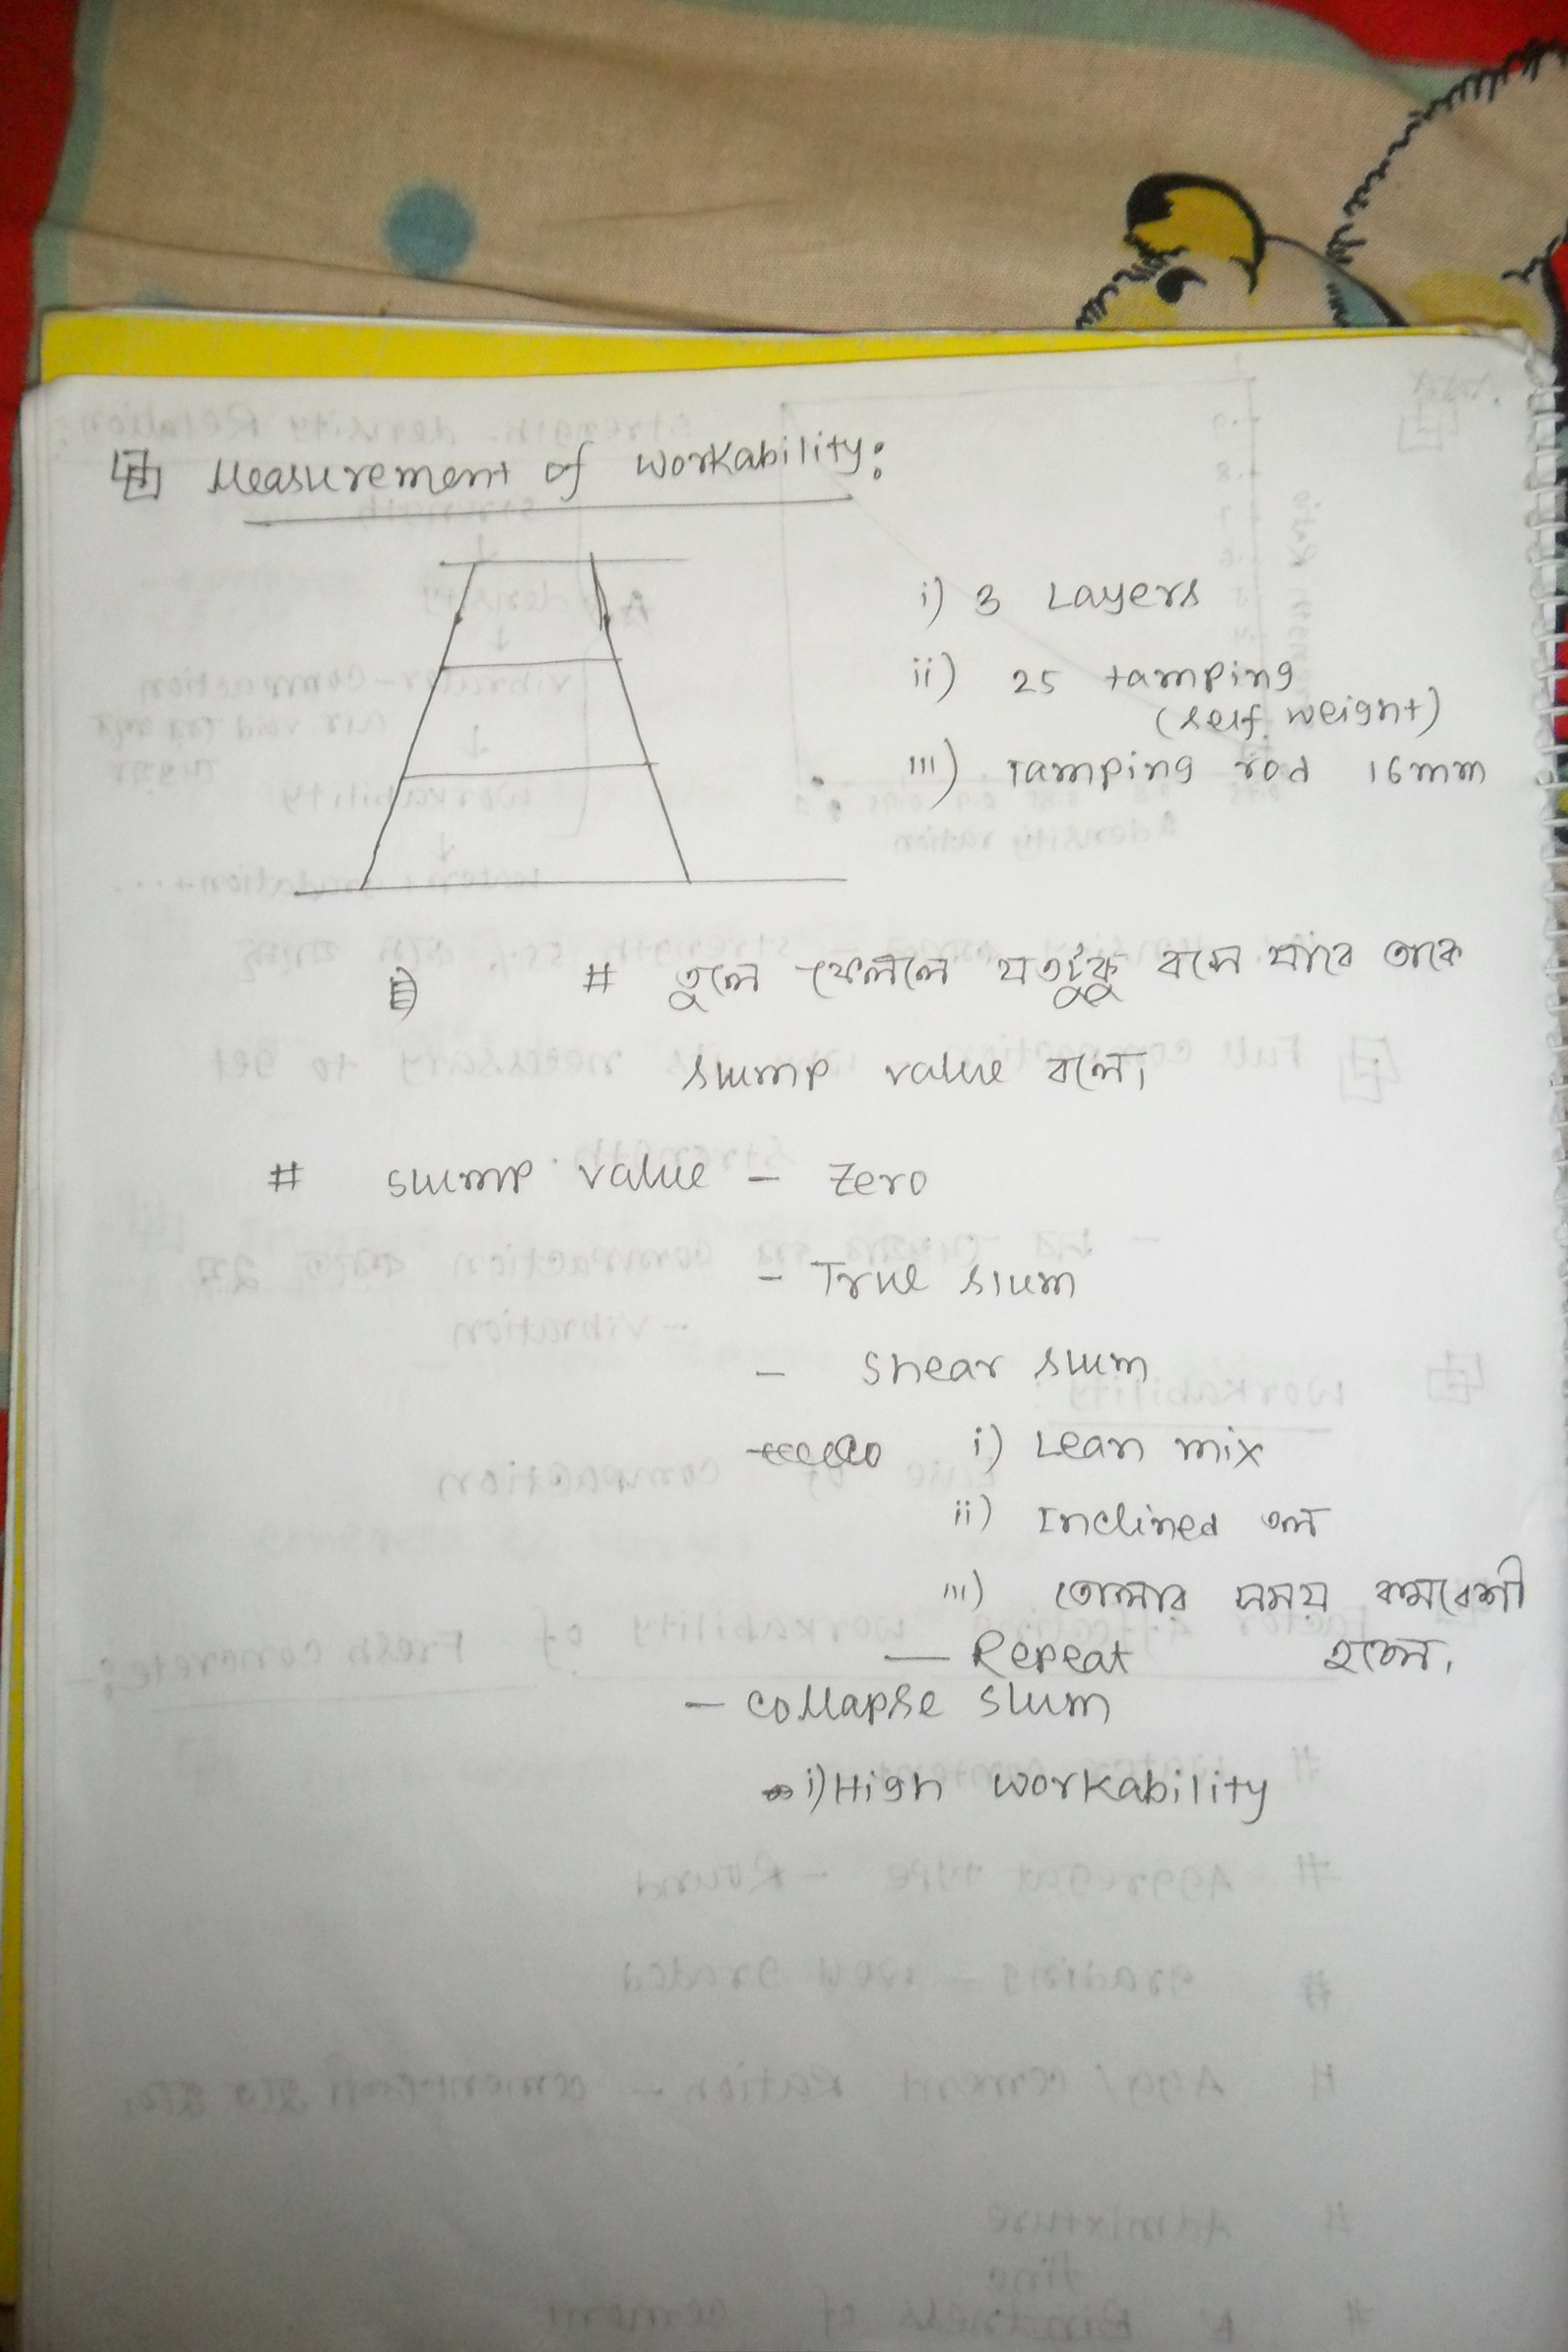 Measurement of Workability:
i) 3 Layers
ii) 25 tamping
(self weight)
iii) Tamping rod 16mm
# তুলে ফেললে যতটুকু বসে যাবে তাকে
slump value বলে।
# slump value - Zero
- True slum
- Shear slum
i) Lean mix
ii) Inclined তল
iii) তোলার সময় কমবেশী
হলে।
— Repeat
- Collapse slum
i) High workability